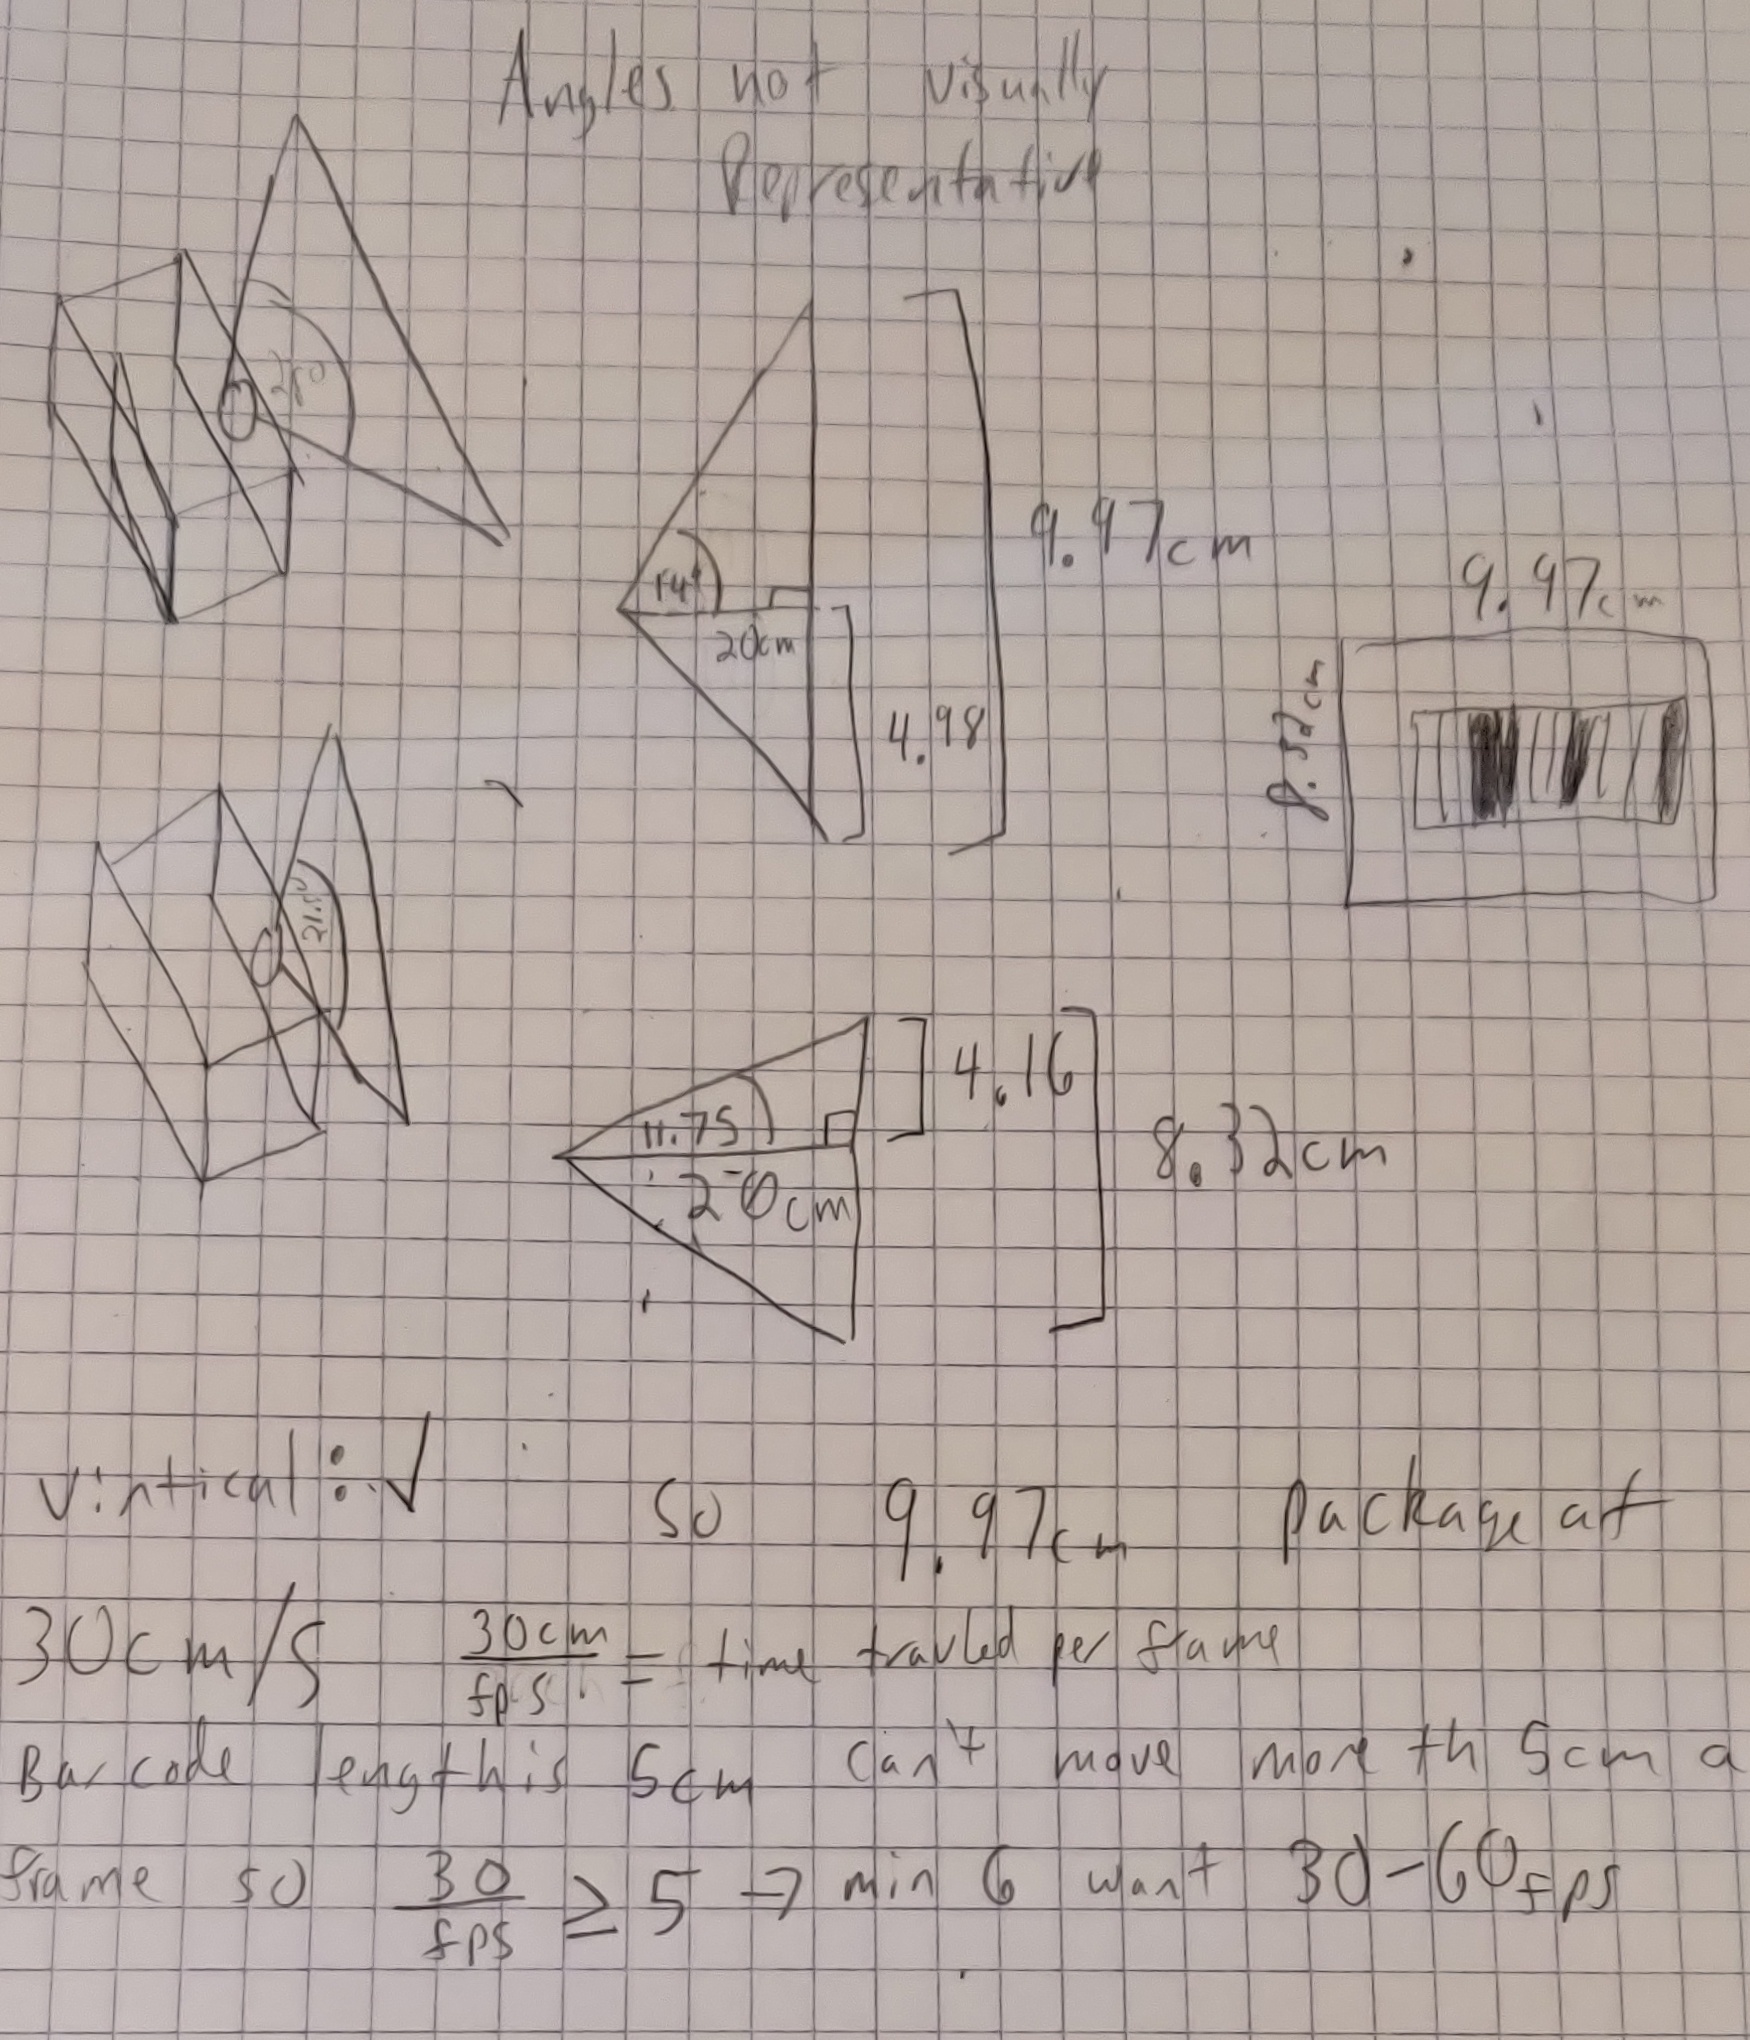 Angles not visually
Representative
28°
14°
20cm
4.98
9.97cm
9.97cm
8.32cm
21.5°
11.75
20cm
4.16
8.32cm
Virtical: ✓ so 9.97cm package at
30cm/s 30cm/fps = time travled per frame
Barcode length is 5cm can't move more th 5cm a
frame so 30/fps ≥ 5 → min 6 want 30-60fps